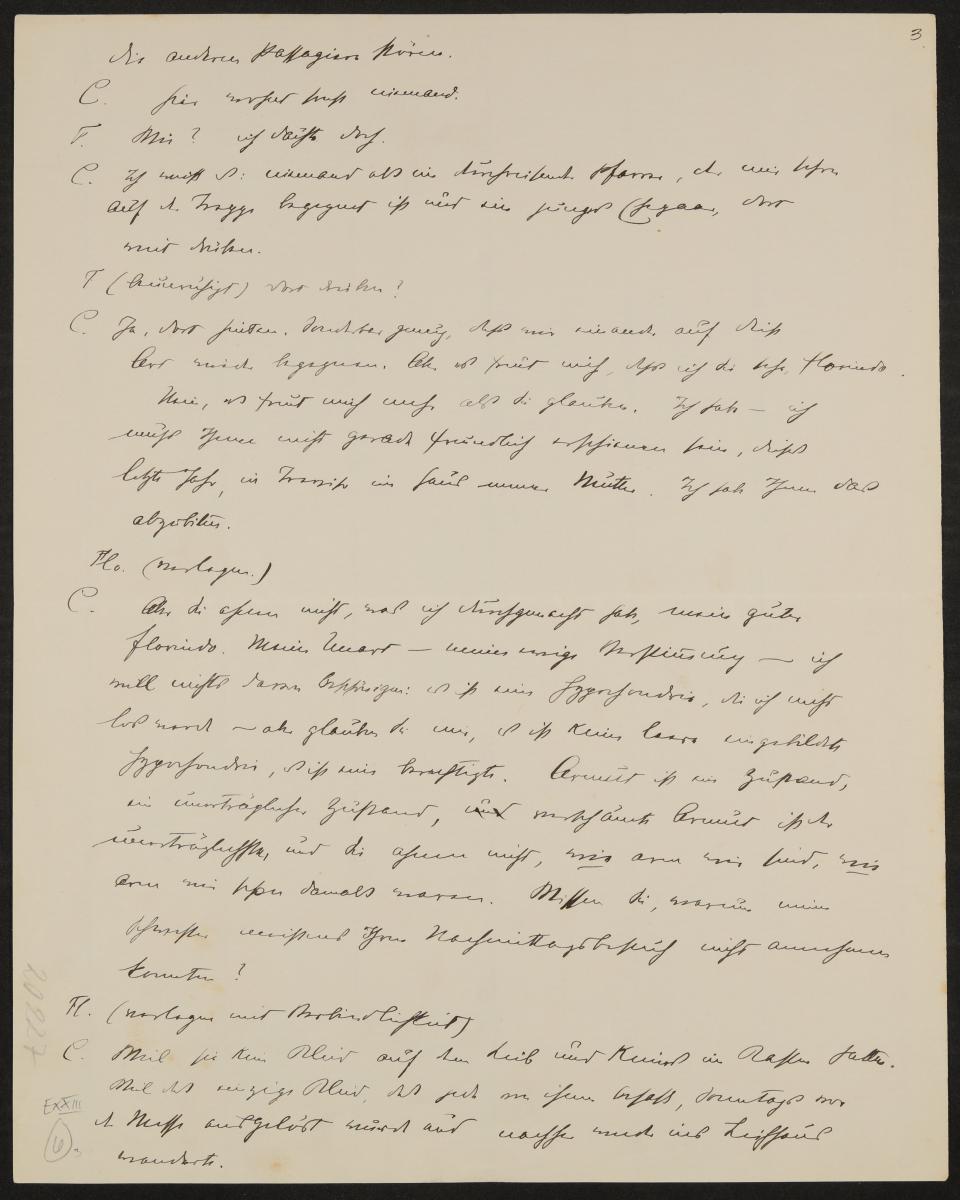 3
die anderen Passagiere stören.
C. hier wohnt sonst niemand.
F. Wie? ich dächte doch.
C. Ich weiß es: niemand als ein durchreisender Pfarrer, der mir schon
auf der Treppe begegnet ist und ein junges Ehepaar, dort
weit drüben.
F (beunruhigt) dort drüben?
C. Ja, dort hinten. Sonderbar genug, daß wir einander auf diese
Art wieder begegnen. Aber es freut mich, daß ich Sie sehe, Florindo.
Nein, es freut mich mehr als Sie glauben. Ich habe – ich
muß Ihnen nicht gerade freundlich erschienen sein, dieses
letzte Jahr, in Treviso im Haus meiner Mutter. Ich habe Ihnen das
abzubitten.
Flo. (verlegen.)
C. Aber Sie ahnen nicht, was ich durchgemacht habe, mein guter
Florindo. Meine Unart – meine ewige Verstimmung – ich
will nichts davon beschönigen: es ist eine Hypochondrie, die ich nicht
los werde – aber glauben Sie mir, es ist keine leere eingebildete
Hypochondrie, es ist eine berechtigte. Armut ist ein Zustand,
ein unerträglicher Zustand, und verschämte Armut ist der
unerträglichste, und Sie ahnen nicht, wie arm wir sind, wie
arm wir schon damals waren. Wissen Sie, warum meine
Schwestern meistens Ihren Nachmittagsbesuch nicht annehmen
konnten?
Fl. (verlegen mit Verbindlichkeit)
C. Weil sie kein Kleid auf dem Leib und keines im Kasten hatten.
Weil das einzige Kleid, das jede von ihnen besaß, Sonntags vor
der Messe ausgelöst wurde und nachher wieder ins Leihhaus
wanderte.
20927
E XXIII
6